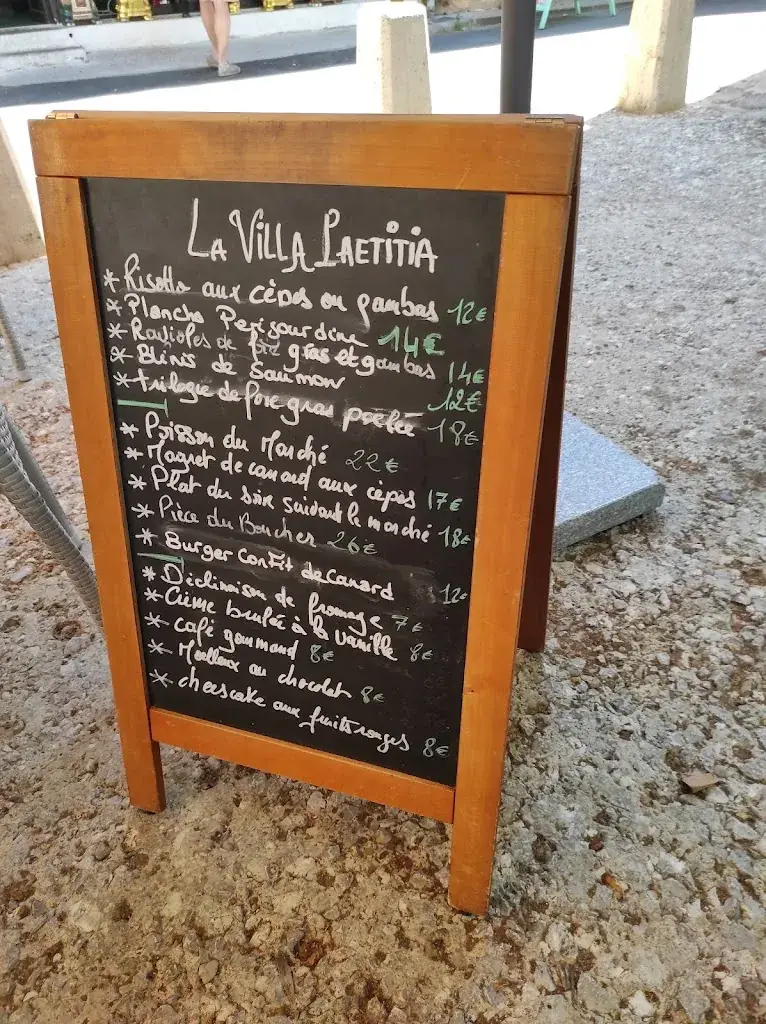 La Villa Laetitia
* Risotto aux cèpes ou gambas 12€
* Plancha Perigourdine 14€
* Ravioles de foie gras et gambas 14€
* Blinis de Saumon 12€
* trilogie de foie gras poêlée 18€
* Poisson du Marché 22€
* Magret de canard aux cèpes 17€
* Plat du soir suivant le marché 18€
* Pièce du Boucher 26€
* Burger Confit de canard 12€
* Déclinaison de fromage 7€
* Crème brulée à la vanille 8€
* café gourmand 8€
* Moelleux au chocolat 8€
* cheescake aux fruits rouges 8€